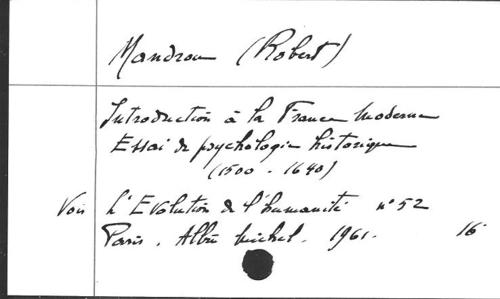 Mandrou (Robert)
Introduction à la France Moderne
Essai de psychologie historique
(1500 - 1640)
Voir L'Evolution de l'humanité n° 52
Paris. Albin Michel. 1961. 16